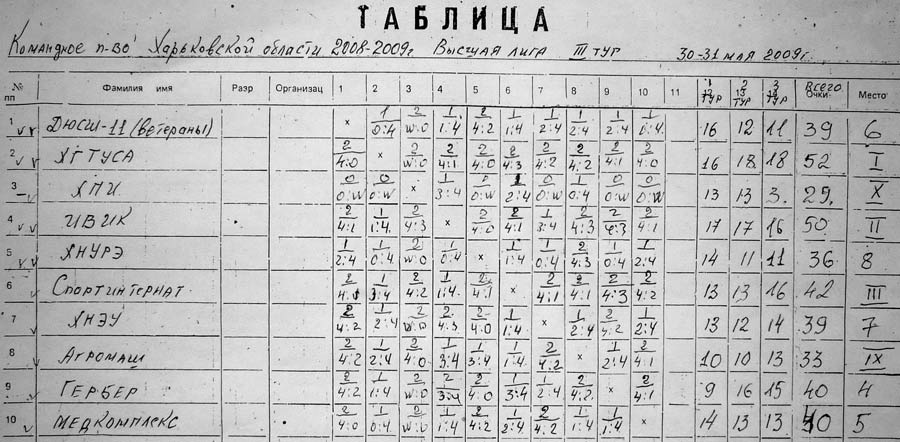 ТАБЛИЦА
Командное п-во Харьковской области 2008-2009г. Высшая лига III тур 30-31 мая 2009г.
№ пп Фамилия имя Разр Организац 1 2 3 4 5 6 7 8 9 10 11 1 тур 2 13 тур 3 тур Всего Очки Место
1 ДЮСШ-11 (ветераны) x 1 0:4 2 w:0 1 1:4 2 4:2 1 1:4 1 2:4 1 2:4 1 2:4 1 0:4 16 12 11 39 6
2 ХГТУСА 2 4:0 x 2 w:0 2 4:1 2 4:0 2 4:3 2 4:2 2 4:2 2 4:1 2 4:0 16 18 18 52 I
3 ХПИ 0 0:w 0 0:w x 1 3:4 0 0:w 1 2:4 0 0:w 1 0:4 0 0:w 0 0:w 13 13 3. 29. X
4 ИВИК 2 4:1 1 1:4 2 4:3 x 2 4:0 2 4:1 1 3:4 2 4:3 2 4:3 2 4:1 17 17 16 50 II
5 ХНУРЭ 1 2:4 1 0:4 2 w:0 1 0:4 x 1 1:4 1 0:4 2 4:3 1 0:4 1 2:4 14 11 11 36 8
6 Спортинтернат 2 4:1 1 3:4 2 4:2 1 1:4 2 4:1 x 2 4:1 2 4:1 2 4:3 2 4:2 13 13 16 42 III
7 ХНЭУ 2 4:2 1 2:4 2 w:0 2 4:3 2 4:0 1 1:4 x 1 2:4 2 4:2 1 2:4 13 12 14 39 7
8 Агромаш 2 4:2 1 2:4 2 4:0 1 3:4 1 3:4 1 1:4 2 4:2 x 1 2:4 2 4:1 10 10 13 33 IX
9 Гербер 2 4:2 1 1:4 2 w:0 2 3:4 2 4:0 1 3:4 1 2:4 2 4:2 x 2 4:1 9 16 15 40 4
10 Медкомплекс 2 4:0 1 0:4 2 w:0 1 1:4 2 4:2 1 2:4 2 4:2 1 1:4 1 1:4 x 14 13 13 40 5